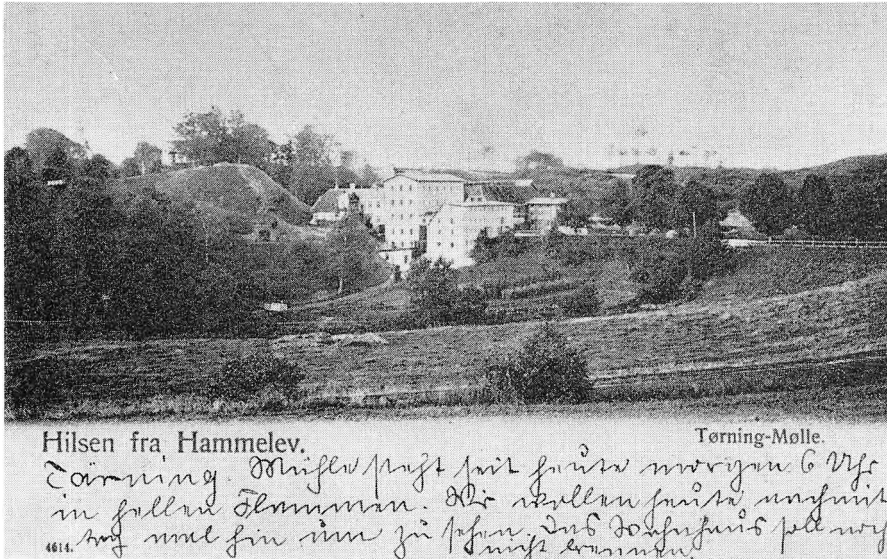 Hilsen fra Hammelev.
Tørning-Mølle.
Törning. Mühle steht seit heute morgen 6 Uhr
in hellen Flammen. Wir wollen heute nachmit
tag mal hin um zu sehen. Das Wohnhaus soll noch
nicht brennen.
4614.